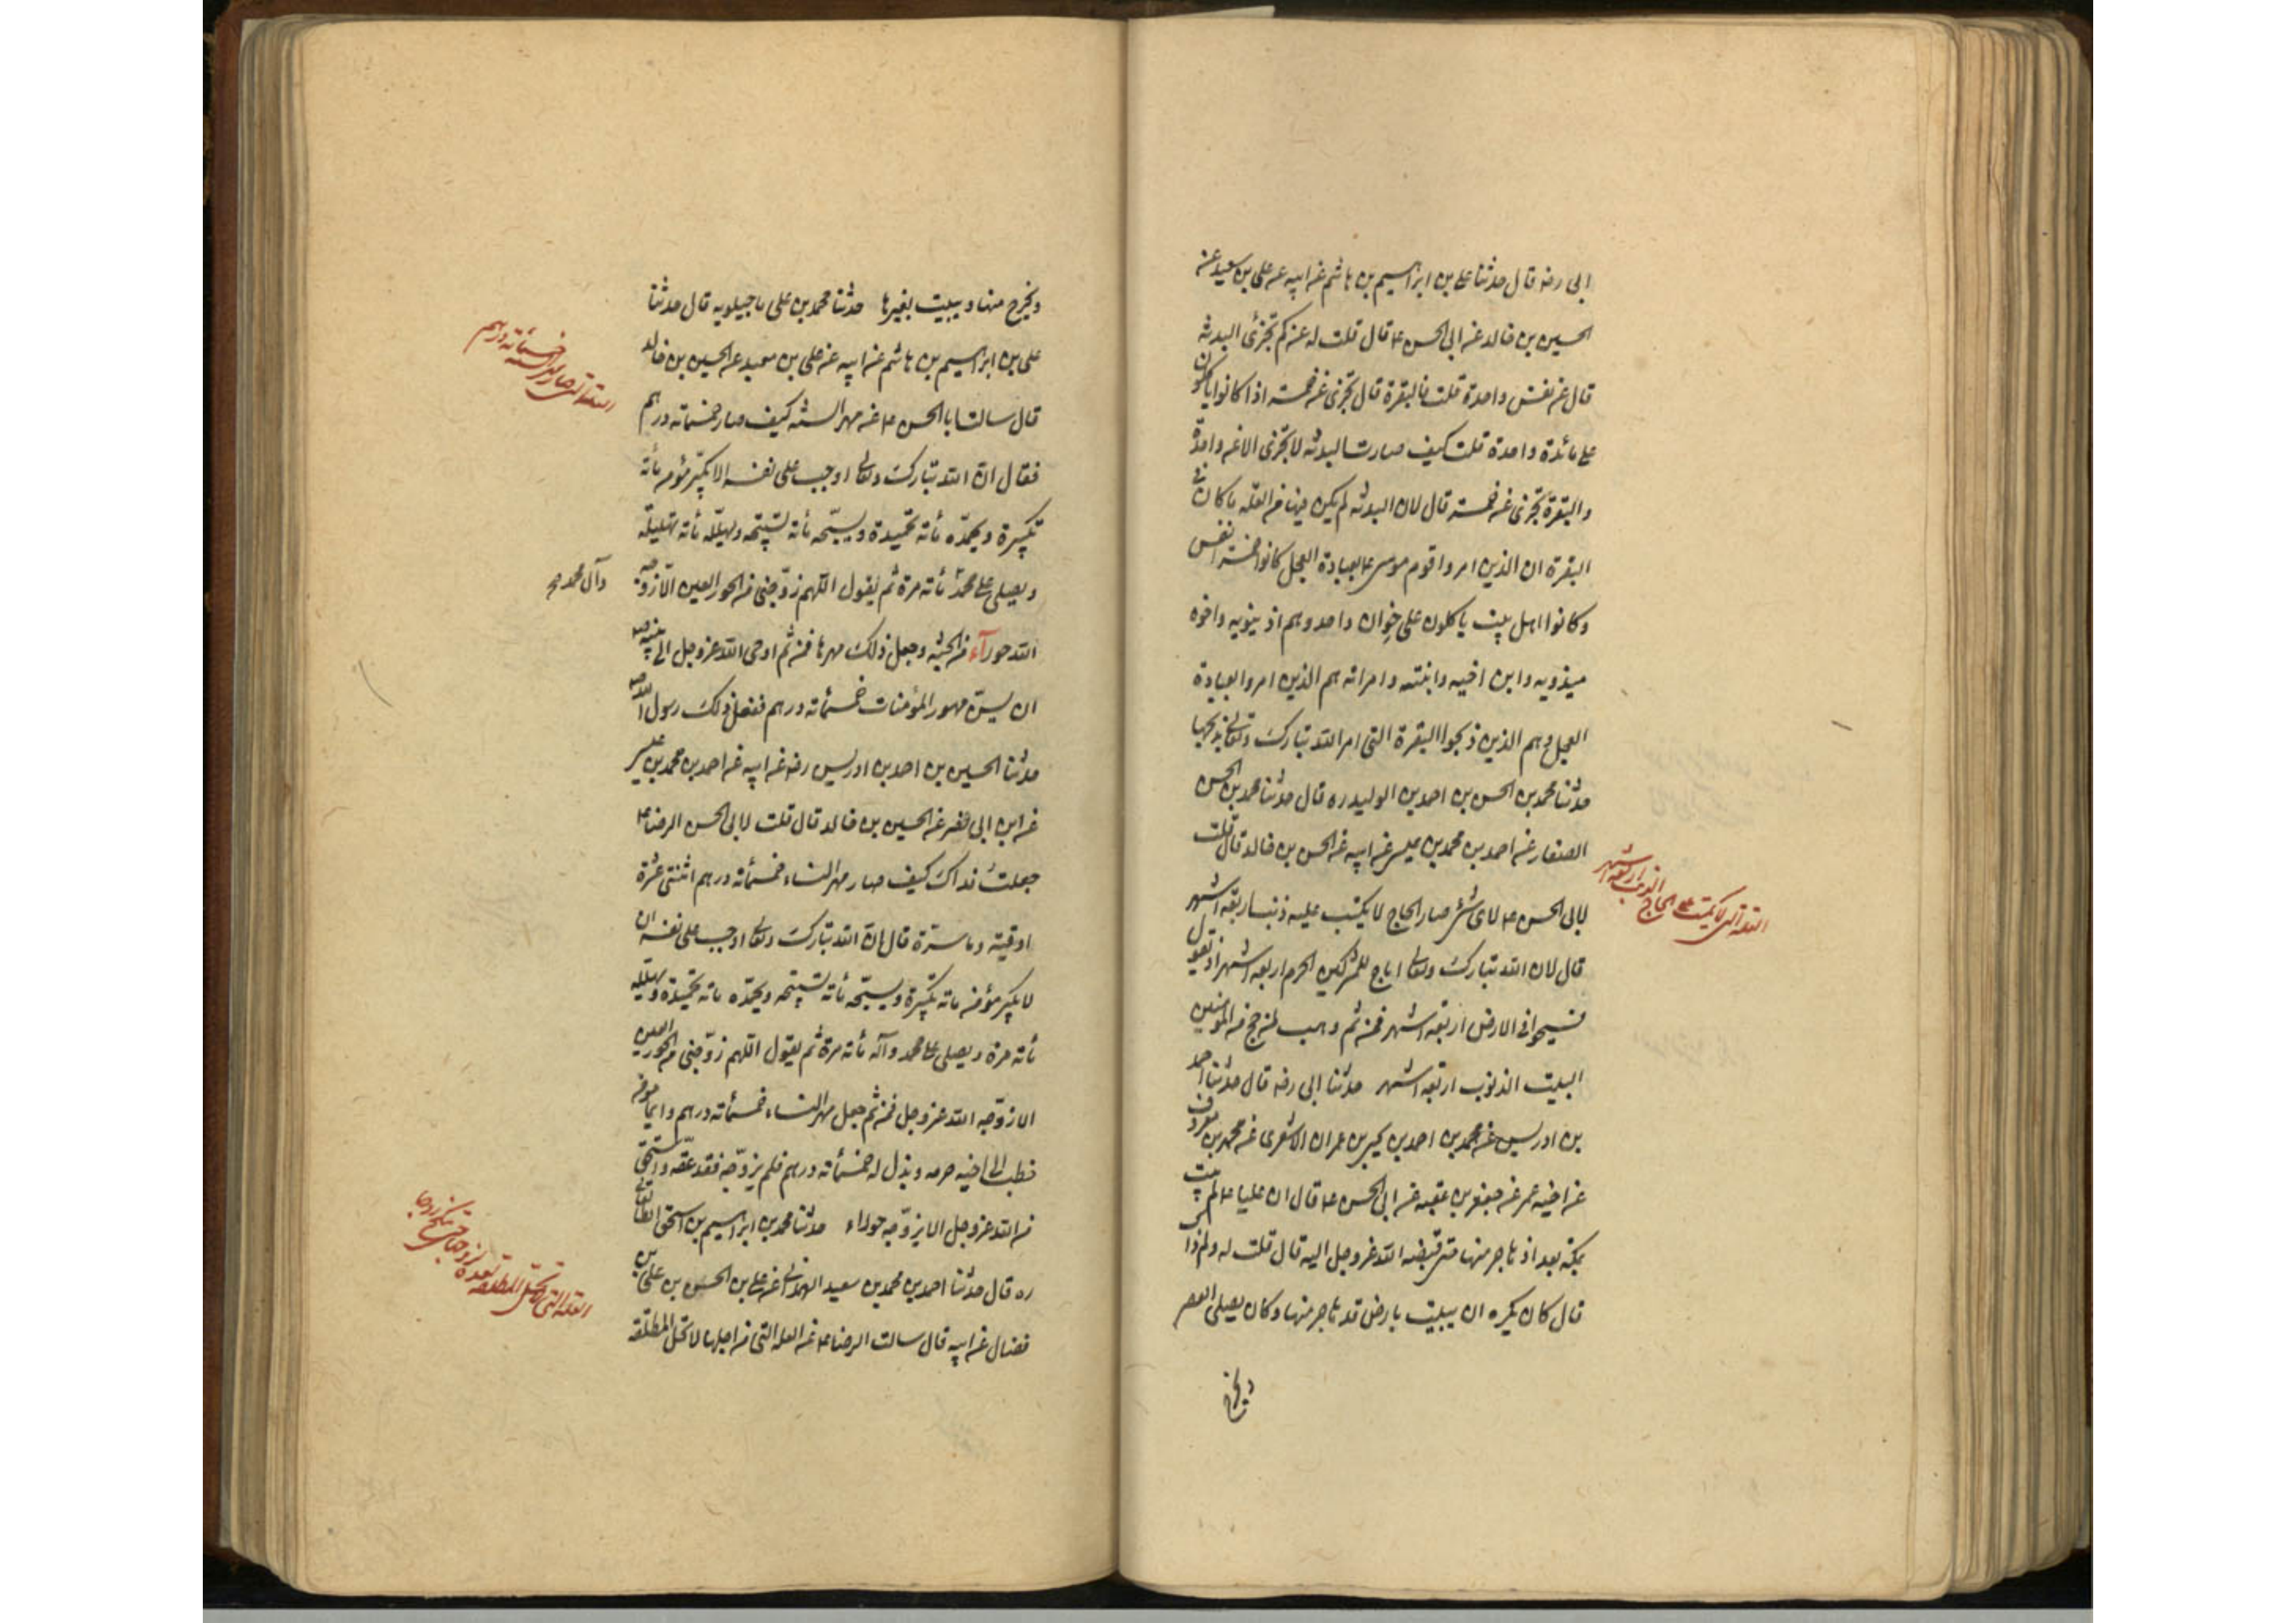 ابى رضه قال حدثنا على بن ابراهيم بن هاشم عن ابيه عن على بن سعيد عن
الحسين بن خالد عن ابى الحسن ع قال قلت له عن كم تجزئ البدنة
قال عن نفس واحدة قلت فالبقرة قال تجزئ عن خمسة اذا كانوا ياكلون
على مائدة واحدة قلت كيف صارت البدنة لا تجزئ الا عن واحدة
والبقرة تجزئ عن خمسة قال لان البدنة لم يكن فيها من العلة ما كان فى
البقرة ان الذين امروا قوم موسى ع بعبادة العجل كانوا خمسة انفس
وكانوا اهل بيت ياكلون على خوان واحد وهم اذينويه واخوه
ميذويه وابن اخيه وابنته وامراته هم الذين امروا بعبادة
العجل وهم الذين ذبحوا البقرة التى امر الله تبارك وتعالى بذبحها
حدثنا محمد بن الحسن بن احمد بن الوليد ره قال حدثنا محمد بن الحسن
الصفار عن احمد بن محمد بن عيسى عن ابيه عن الحسن بن خالد قال قلت
لابى الحسن ع لاى شئ صار الحاج لا يكتب عليه ذنب اربعة اشهر
قال لان الله تبارك وتعالى اباح للمشركين الحرم اربعة اشهر اذ يقول
فسيحوا فى الارض اربعة اشهر فمن ثم وهب لمن حج من المؤمنين
البيت الذنوب اربعة اشهر حدثنا ابى رضه قال حدثنا احمد
بن ادريس عن محمد بن احمد بن يحيى بن عمران الاشعرى عن محمد بن معروف
عن اخيه عمر عن جعفر بن عقبه عن ابى الحسن ع قال ان عليا ع لم يبت
بمكة بعد اذ هاجر منها حتى قبضه الله عز وجل اليه قال قلت له ولم ذاك
قال كان يكره ان يبيت بارض قد هاجر منها وكان يصلى العصر
ويخرج
العلة التى لا يكتب على الحاج
الذنب اربعة اشهر
ويخرج منها ويبيت بغيرها حدثنا محمد بن على ماجيلويه قال حدثنا
على بن ابراهيم بن هاشم عن ابيه عن على بن سعيد عن الحسين بن خالد
قال سالت ابا الحسن ع عن مهر السنه كيف صار خمسمائة درهم
فقال ان الله تبارك وتعالى اوجب على نفسه الا يكبره مؤمن مائة
تكبيرة ويحمده مائة تحميدة ويسبحه مائة تسبيحة ويهلله مائة تهليلة
ويصلى على محمد مائة مرة ثم يقول اللهم زوجنى من الحور العين الا زوجه
وآل محمد
الله حورآء من الجنة وجعل ذلك مهرها فمن ثم اوحى الله عز وجل الى نبيه ص
ان يسن مهور المؤمنات خمسمائة درهم ففعل ذلك رسول الله ص
حدثنا الحسين بن احمد بن ادريس رضه عن ابيه عن احمد بن محمد بن عيسى
عن ابن ابى نصر عن الحسين بن خالد قال قلت لابى الحسن الرضا ع
جعلت فداك كيف صار مهر النساء خمسمائة درهم اثنتى عشرة
اوقية ونش قال ان الله تبارك وتعالى اوجب على نفسه ان
لا يكبره مؤمن مائة تكبيرة ويسبحه مائة تسبيحة ويحمده مائة تحميدة ويهلله
مائة مرة ويصلى على محمد وآله مائة مرة ثم يقول اللهم زوجنى من الحور العين
الا زوجه الله عز وجل فمن ثم جعل مهر النساء خمسمائة درهم وايما مؤمن
خطب الى اخيه حرمه وبذل له خمسمائة درهم فلم يزوجه فقد عقه واستحق
من الله عز وجل الا يزوجه حوراء حدثنا محمد بن ابراهيم بن اسحق الطالقانى
ره قال حدثنا احمد بن محمد بن سعيد الهمدانى عن على بن الحسن بن على بن
فضال عن ابيه قال سالت الرضا ع عن العلة التى من اجلها لا تحل المطلقة
خمسمائة درهم
العلة التى
لزوجها حتى تنكح زوجا